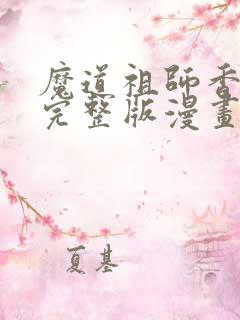 魔道祖師香
完整版漫畫
夏基